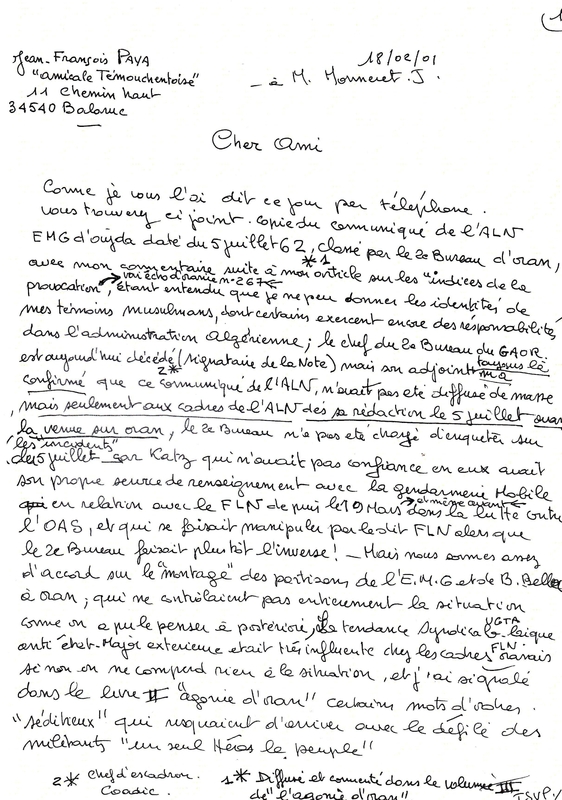 1
Jean-François PAYA
"amicale Témouchentoise"
11 chemin haut
34540 Balaruc
18/02/01
- à M. Monneret. J.
Cher Ami
Comme je vous l'ai dit ce jour par téléphone.
vous trouverez ci joint. copie du communiqué de l'ALN
EMG d'oujda daté du 5 juillet 62, classé par le 2e Bureau d'oran,
avec mon commentaire suite à mon article sur les "indices de la
*1
voir écho d'oranie n° 267
provocation", étant entendu que je ne peu donner les identités de
mes témoins musulmans, dont certains exercent encore des résponsabilités
dans l'administration Algérienne ; le chef du 2e Bureau du GAOR.
est aujourd'hui décédé (signataire de la Note) mais son adjoint m'a
toujours là
2*
confirmé que ce communiqué de l'ALN, n'avait pas eté diffusé de masse
, mais seulement aux cadres de l'ALN dés sa rédaction le 5 juillet avant
la venue sur oran, le 2e Bureau n'a pas eté chargé d'enquêter sur
les "incidents"
du 5 juillet car Katz qui n'avait pas confiance en eux avait
son propre service de renseignement avec la gendarmerie Mobile
en relation avec le FLN depuis le 19 Mars dans la lutte contre
et même avant
l'OAS, et qui se faisait manipuler par le dit FLN alors que
le 2e Bureau faisait plustôt l'inverse ! - Mais nous sommes assez
d'accord sur le "montage" des partisans de l'E.M.G et de B. Bella
à oran ; qui ne contrôlaient pas entierement la situation
comme on a pu le penser à postériori, la tendance syndicale laïque
UGTA
anti état-Major exterieure etait trés influente chez les cadres oranais
FLN
si non on ne comprend rien à la situation, et j'ai signalé
dans le livre II "agonie d'oran" certains mots d'ordres.
"séditieux" qui risquaient d'arriver avec le défilé des
militants "un seul Héros le peuple"
2* Chef d'escadron.
Coadic.
1* Diffusé et commenté dans le volume III
de "l'agonie d'oran"
TSVP/